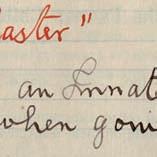 aster"
an Innat
when goin